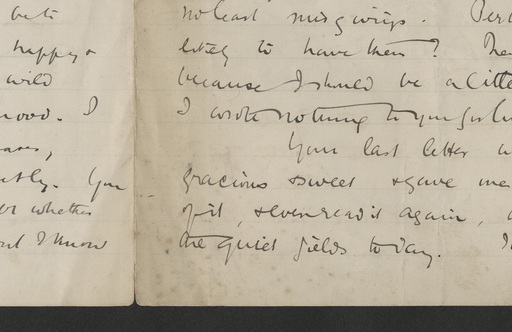 but
happy &
wild
mood. I
ears,
ntly. You
or whether
but I know
no least misgivings. Per
likely to have them? The
because I should be a little
I wrote nothing to you
Your last letter w
gracious & sweet & gave me
of it, & even read it again, a
the quiet fields today. I